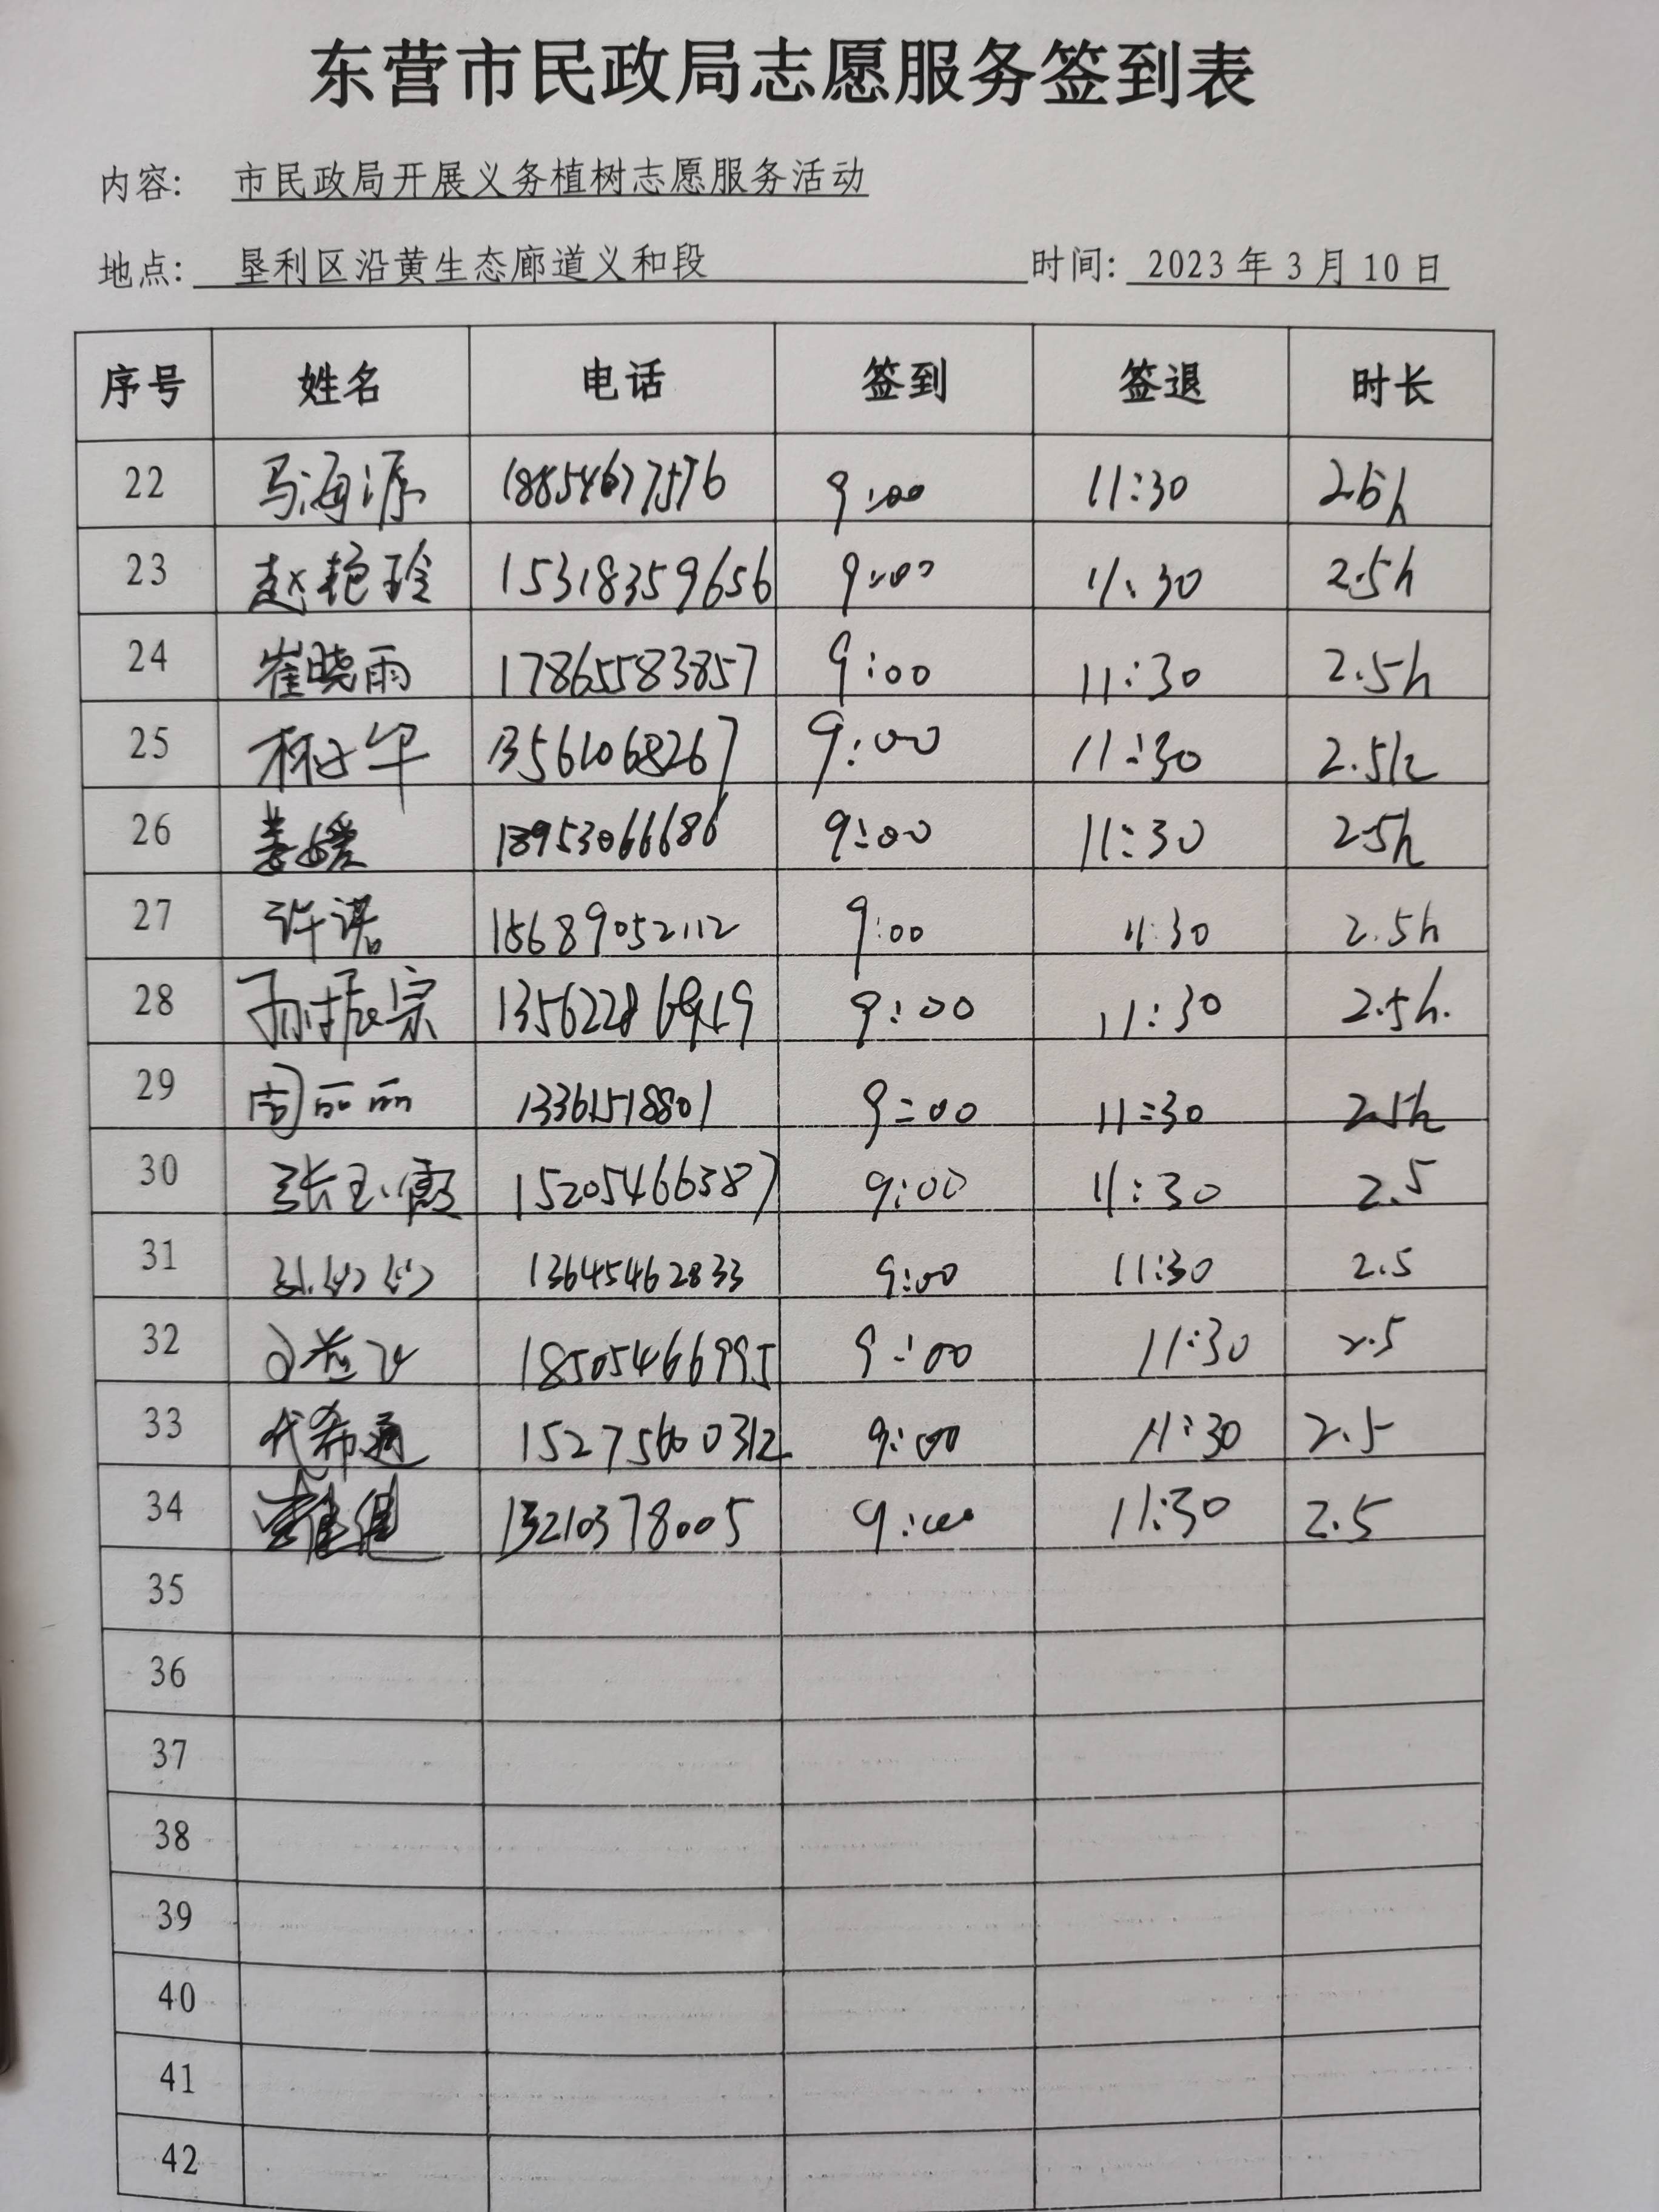 东营市民政局志愿服务签到表
内容: 市民政局开展义务植树志愿服务活动
地点: 垦利区沿黄生态廊道义和段 时间: 2023年3月10日
序号 姓名 电话 签到 签退 时长
22 马海源 18854677576 9:00 11:30 2.5h
23 赵艳玲 15318359656 9:00 11:30 2.5h
24 崔晓雨 17865583857 9:00 11:30 2.5h
25 13561068267 9:00 11:30 2.5h
26 姜媛 18953066686 9:00 11:30 2.5h
27 许诺 15689052112 9:00 11:30 2.5h
28 孙振宗 9:00 11:30 2.5h.
29 周丽丽 13361518801 9:00 11:30 2.5h
30 张玉霞 15205466387 9:00 11:30 2.5
31 13645462833 9:00 11:30 2.5
32 18505466995 9:00 11:30 2.5
33 代希通 15275600312 9:00 11:30 2.5
34 13210378005 9:00 11:30 2.5
35
36
37
38
39
40
41
42